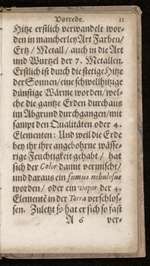 Vorrede. 11
Hitze erstlich verwandelt wor-
den in mancherley Art Farben/
Ertz/ Metall/ auch in die Art
und Wurtzel der 7. Metallen.
Erstlich ist durch die stetige Hitze
der Sonnen/ eine schwellhitzige
dünstige Wärme worden/ wel-
che die gantze Erden durchaus
im Abgrund durchgangen/ mit
sampt den Qualitäten oder 4.
Elementen: Und weil die Erde
bey ihr ihre angebohrne wässe-
rige Feuchtigkeit gehabt/ hat
sich der Calor damit vermischt/
und daraus ein fumus nebulosus
worden/ oder ein vapor der 4.
Elemente in der Terra verschlos-
sen. Zuletzt so hat er sich so fast
A 6 ver-